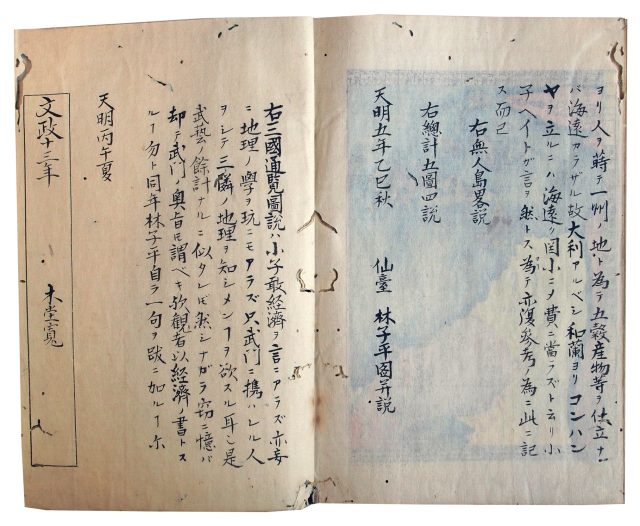 ヨリ人ヲ蒔テ一州ノ地ト為テ五穀産物等ヲ仕立ナ
バ海遠カラザル故大利アルベシ和蘭ヨリコンハン
ヤヲ立ルニハ海遠ク国小ニメ費ニ當ラズト云リ小
子ヘイトガ言ヲ然トス為テ亦復参考ノ為ニ此ニ記
ス而已
右無人島畧説
右總計五圖四説
天明五年乙巳秋 仙臺 林子平図并説
右三國通覧圖説ハ小子敢経済ヲ言ニアラズ亦妄
ニ地理ノ學ヲ玩ニモアラズ只武門ニ携ハレル人
ヲシテ三隣ノ地理ヲ知シメンヿヲ欲スル耳ニ是
武藝ノ餘計ナルニ似タレ𪜈然シナガラ窃ニ憶バ
却テ武門ノ奥旨𪜈謂ベキ歟観者以経済ノ書トス
ルヿ勿ト同年林子平自ラ一句ヲ跋ニ加ルヿ尓
天明丙午夏
文政十三年 木堂寛